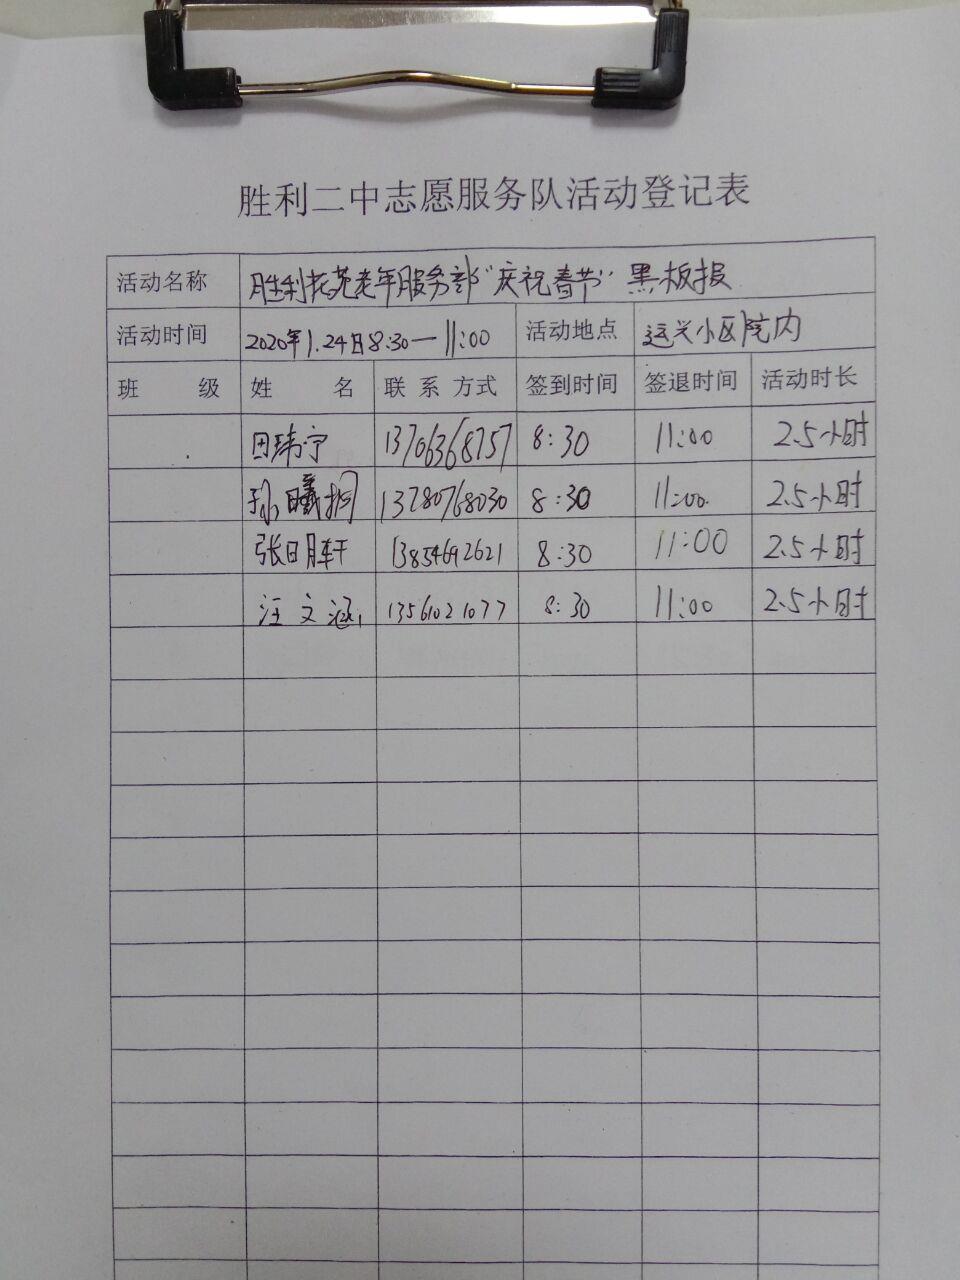 胜利二中志愿服务队活动登记表
活动名称 胜利花苑老年服务部“庆祝春节”黑板报
活动时间 2020年1.24日8:30—11:00 活动地点 运兴小区院内
班 级 姓 名 联 系 方式 签到时间 签退时间 活动时长
田玮宁 13706368757 8:30 11:00 2.5小时
孙曦桐 13780768030 8:30 11:00. 2.5小时
张日月轩 13854692621 8:30 11:00 2.5小时
汪文涵 13561021077 8:30 11:00 2.5小时